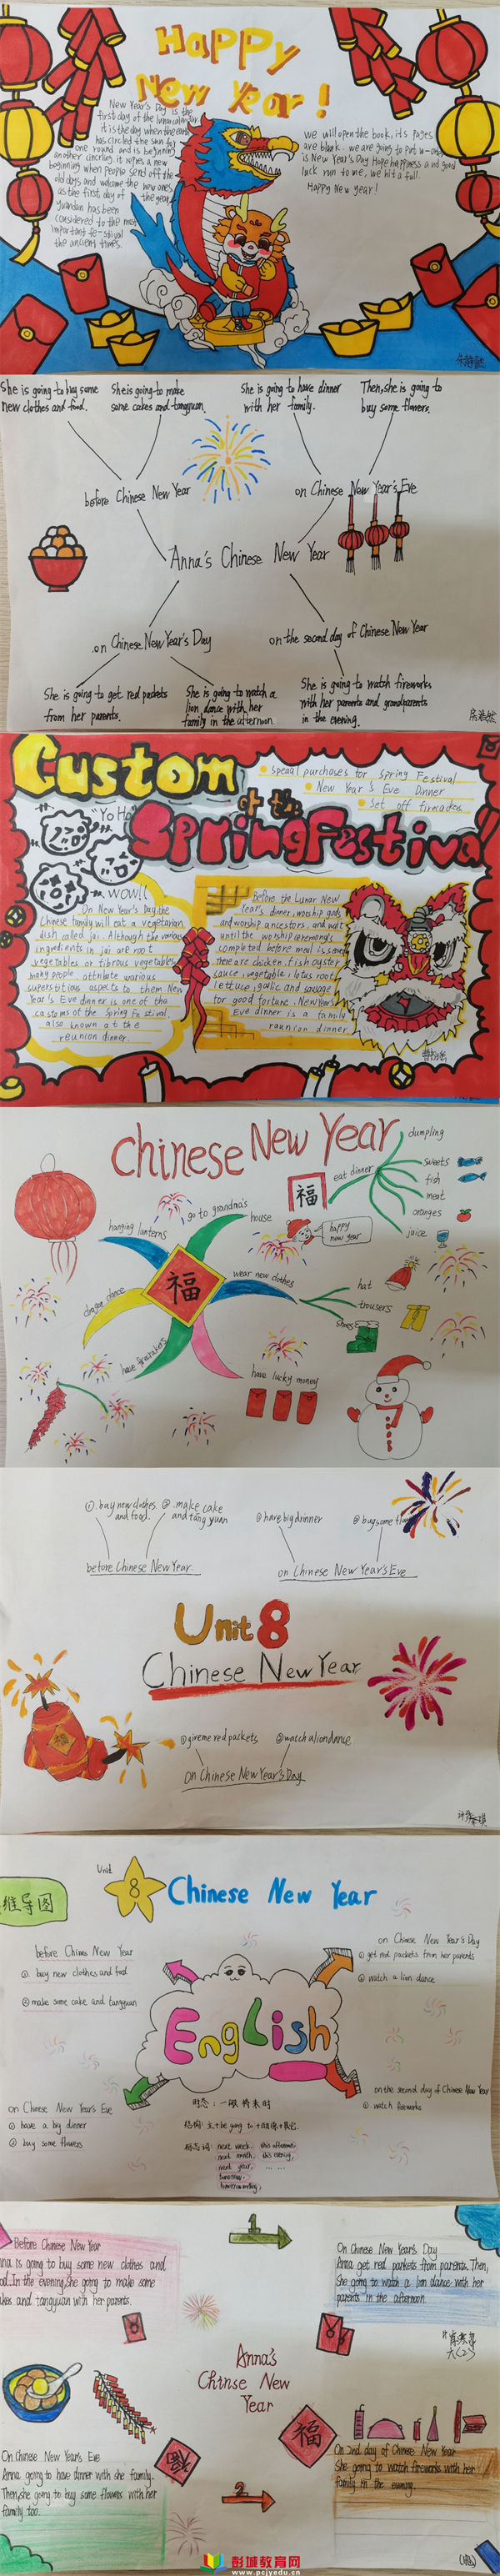 Happy
New Year!
New Year's Day is the
first day of the lunar calendar
it is the day when the earth
has circled the sun for
one round and is beginning
another circling. it opens a new
beginning when people send off the
old days and welcome the new ones
as the first day of the year,
Yuandan has been
considered to the most
important fe-stival
the ancient times.
we will open the book, its pages
are blank. we are going to put w-ords
is New Year's Day Hope happiness and good
luck run to we, we hit a full.
Happy New year!
She is going to buy some
new clothes and food.
She is going to make
some cakes and tangyuan.
She is going to have dinner
with her family.
Then, she is going to
buy some flowers.
before Chinese New Year
on Chinese New Year's Eve
Anna's Chinese New Year
on Chinese New Year's Day
on the second day of Chinese New Year
She is going to get red packets
from her parents.
She is going to watch a
lion dance with her
family in the afternoon
She is going to watch fireworks
with her parents and grandparents
in the evening.
Custom
of the
Spring Festival
Special purchases for Spring Festival
New Year's Eve Dinner
Set off firecracker
"Yo Ho"
WOW!!
On New Year's Day, the
Chinese family will eat a vegetarian
dish called jai. Although the various
ingredients in jai are root
vegetables or fibrous vegetables,
many people attribute various
superstitious aspects to them New
Year's Eve dinner is one of the
customs of the Spring Festival.
also known at the
reunion dinner.
Before the Lunar New
Year's dinner, worship gods
and worship ancestors, and wait
until the worship ceremony is
completed before meal is served
There are chicken, fish, oyster
sauce, vegetable, lotus root
lettuce, garlic and sausage
for good fortune. New Year's
Eve dinner is a family
raunion dinner
Chinese New Year
dumpling
sweets
fish
meat
oranges
juice
eat dinner
福
happy
new year
go to grandma's
house
hanging lanterns
福
dragon dance
wear new clothes
hat
trousers
shoes
have firecrackers
have lucky money
① buy new clothes
and food.
② make cake
and tang yuan
① have big dinner
② buy some flow
before Chinese New Year
on Chinese New Year's Eve
Unit 8
Chinese New Year
福
① give me red packets
② watch a lion dance.
on Chinese New Year's Day
维导图
Unit
8
Chinese New Year
before Chines New Year
① buy new clothes and food
② make some cake and tangyuan
on Chinese New Year's Day
① get red packets from her parents
② watch a lion dance
English
on the second day of Chinese New Year
① watch fireworks
on Chinese New Year's Eve
① have a big dinner
② buy some flowers
时态: 一般将来时
结构: 主+be going to +动原+其它.
标志词: next week, this afternoon
next month, this evening,
next year, ... ...
tomorrow,
Before Chinese New Year
nna is going to buy some new clothes and
od. In the evening, She going to make some
kes and tangyuan with her parents.
1
On Chinese New Year's Day
Anna get red parkets from parents. Then,
She going to watch a lion dance with her
parents in the afternoon
六(2)
Anna's
Chinse New
Year
福
福
On Chinese New Year's Eve
Anna going to have dinner with she family.
Then, she going to buy some flowers with her
family too.
2
On 2nd day of Chinese New Year
She going to watch fireworks with her
family in the evening.
彭城教育网
www.pcjyedu.cn